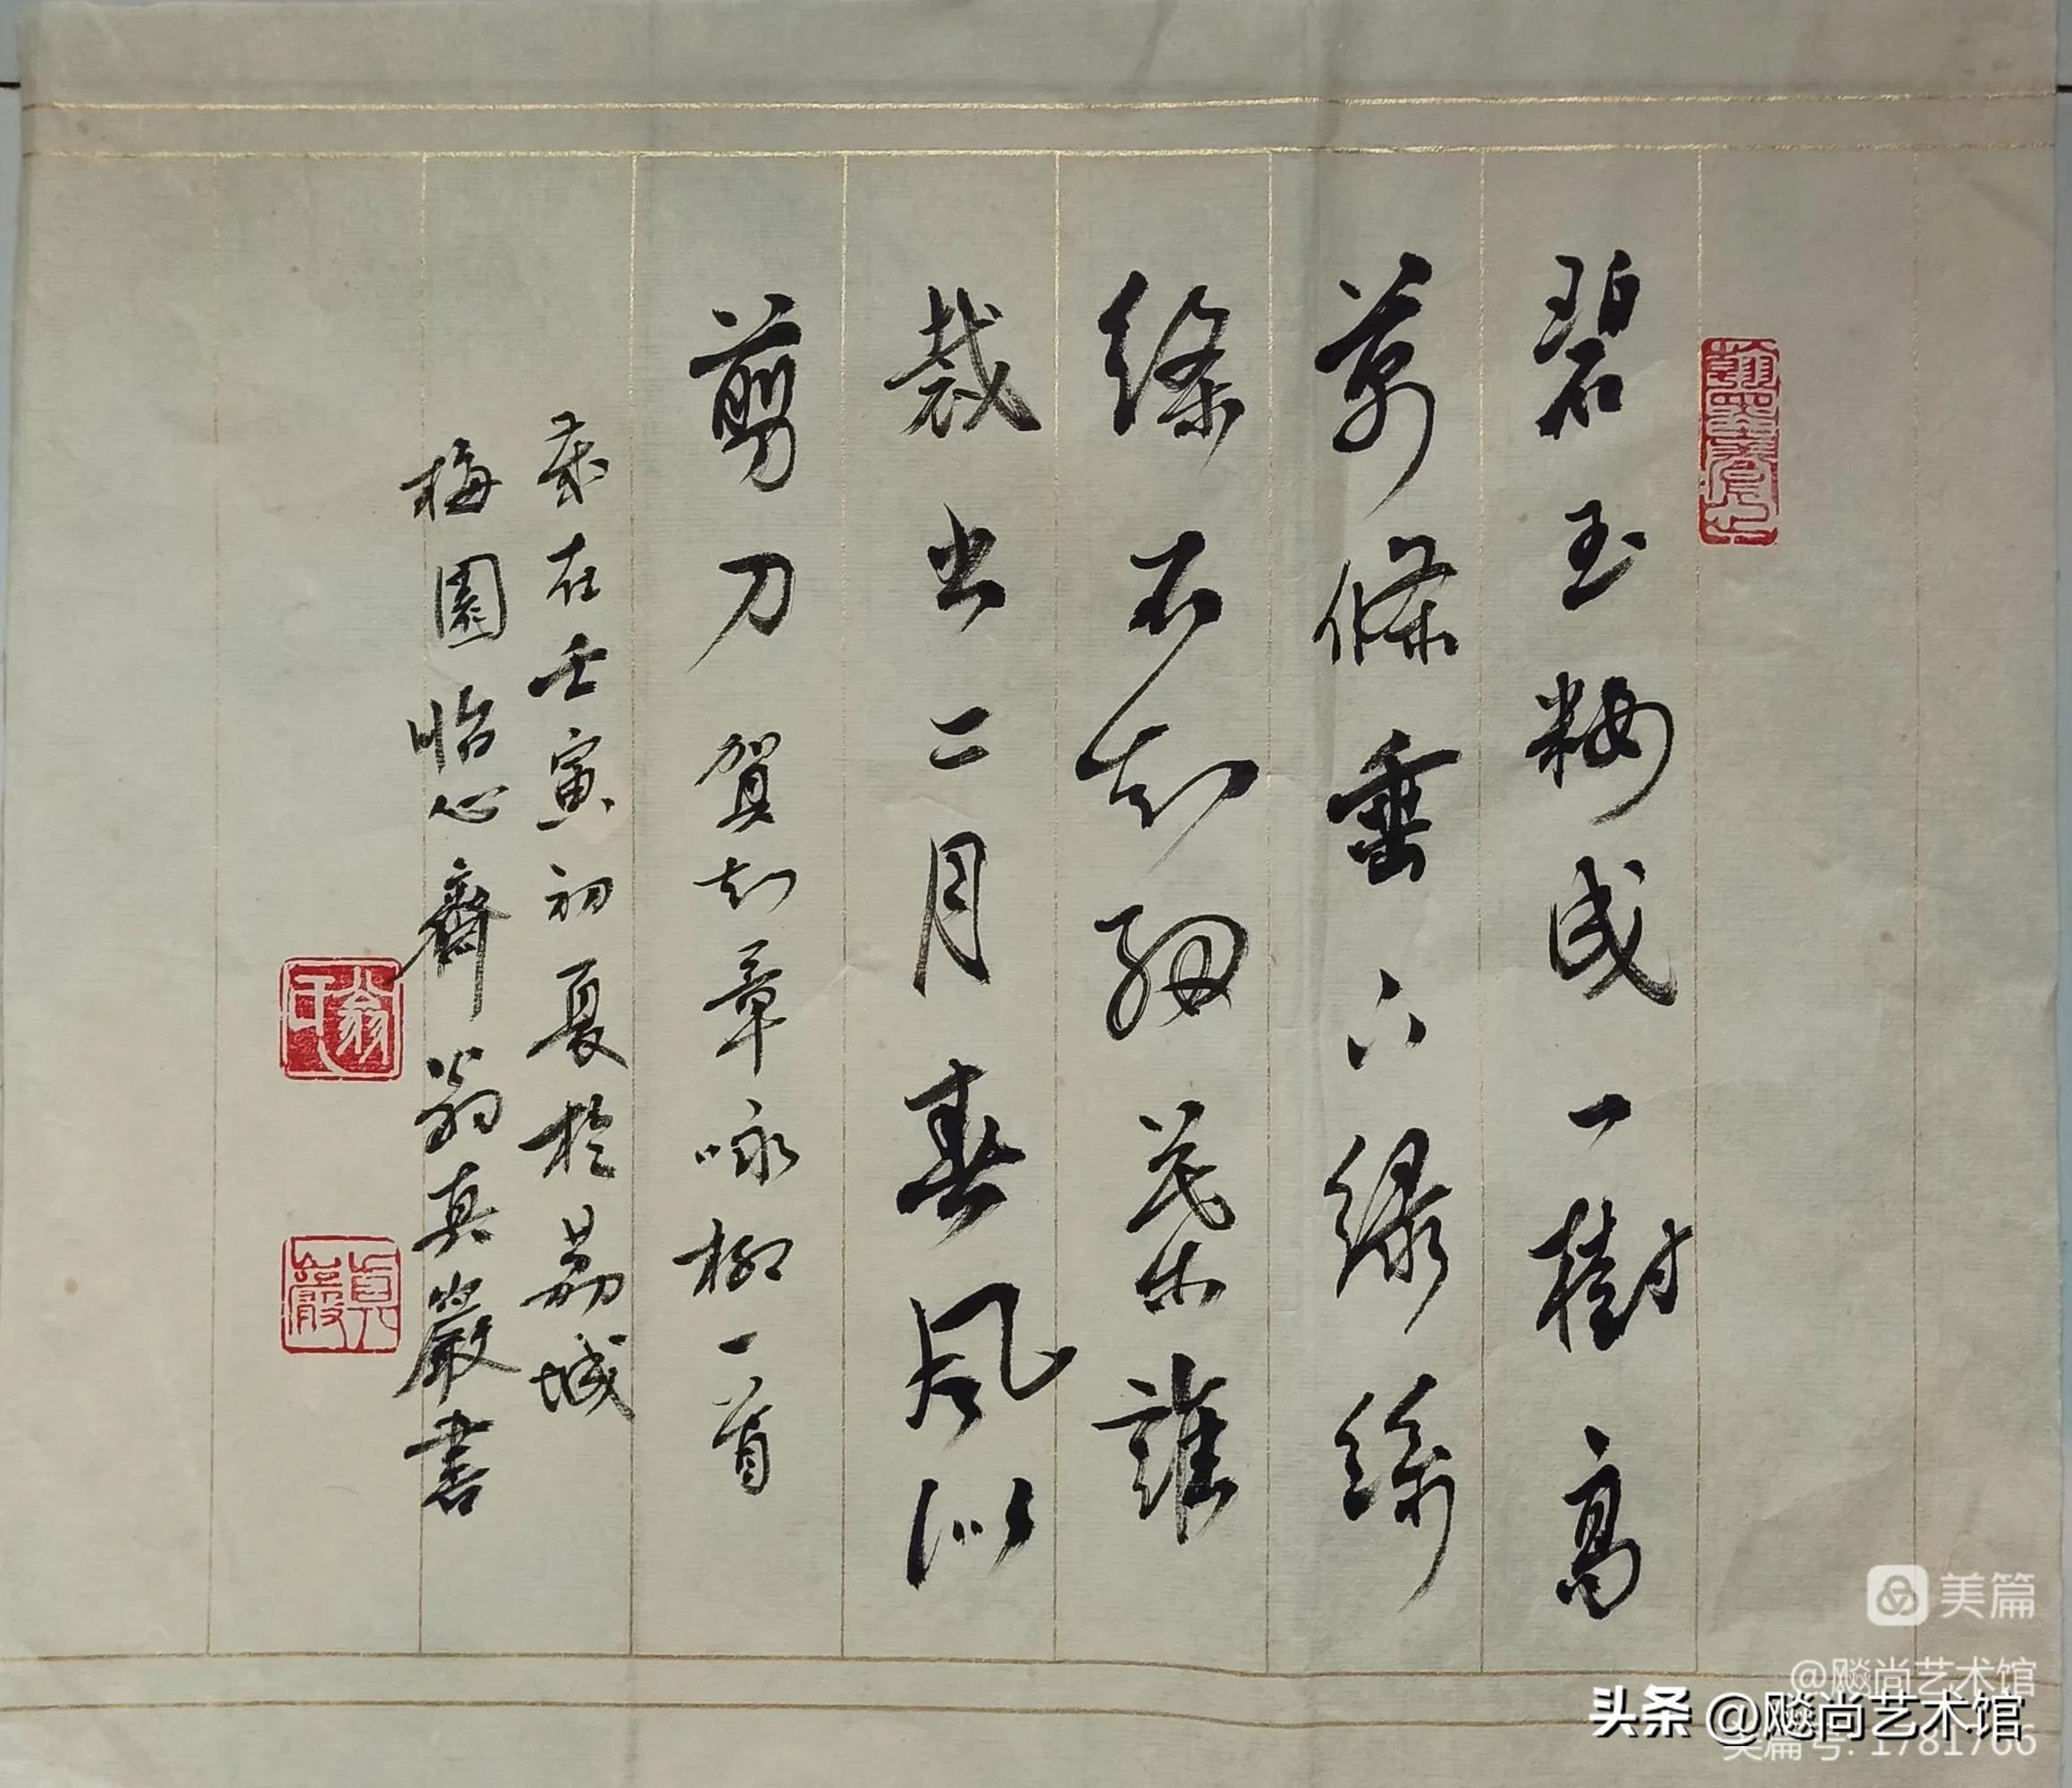 碧玉粧成一樹高
萬條垂下綠絲
絛不知細葉誰
裁出二月春風似
剪刀 賀知章咏柳一首
歲在壬寅初夏於荔城
梅園怡心齋翁真嚴書
翁印
真嚴
美篇
@飚尚艺术馆
头条 @飚尚艺术馆